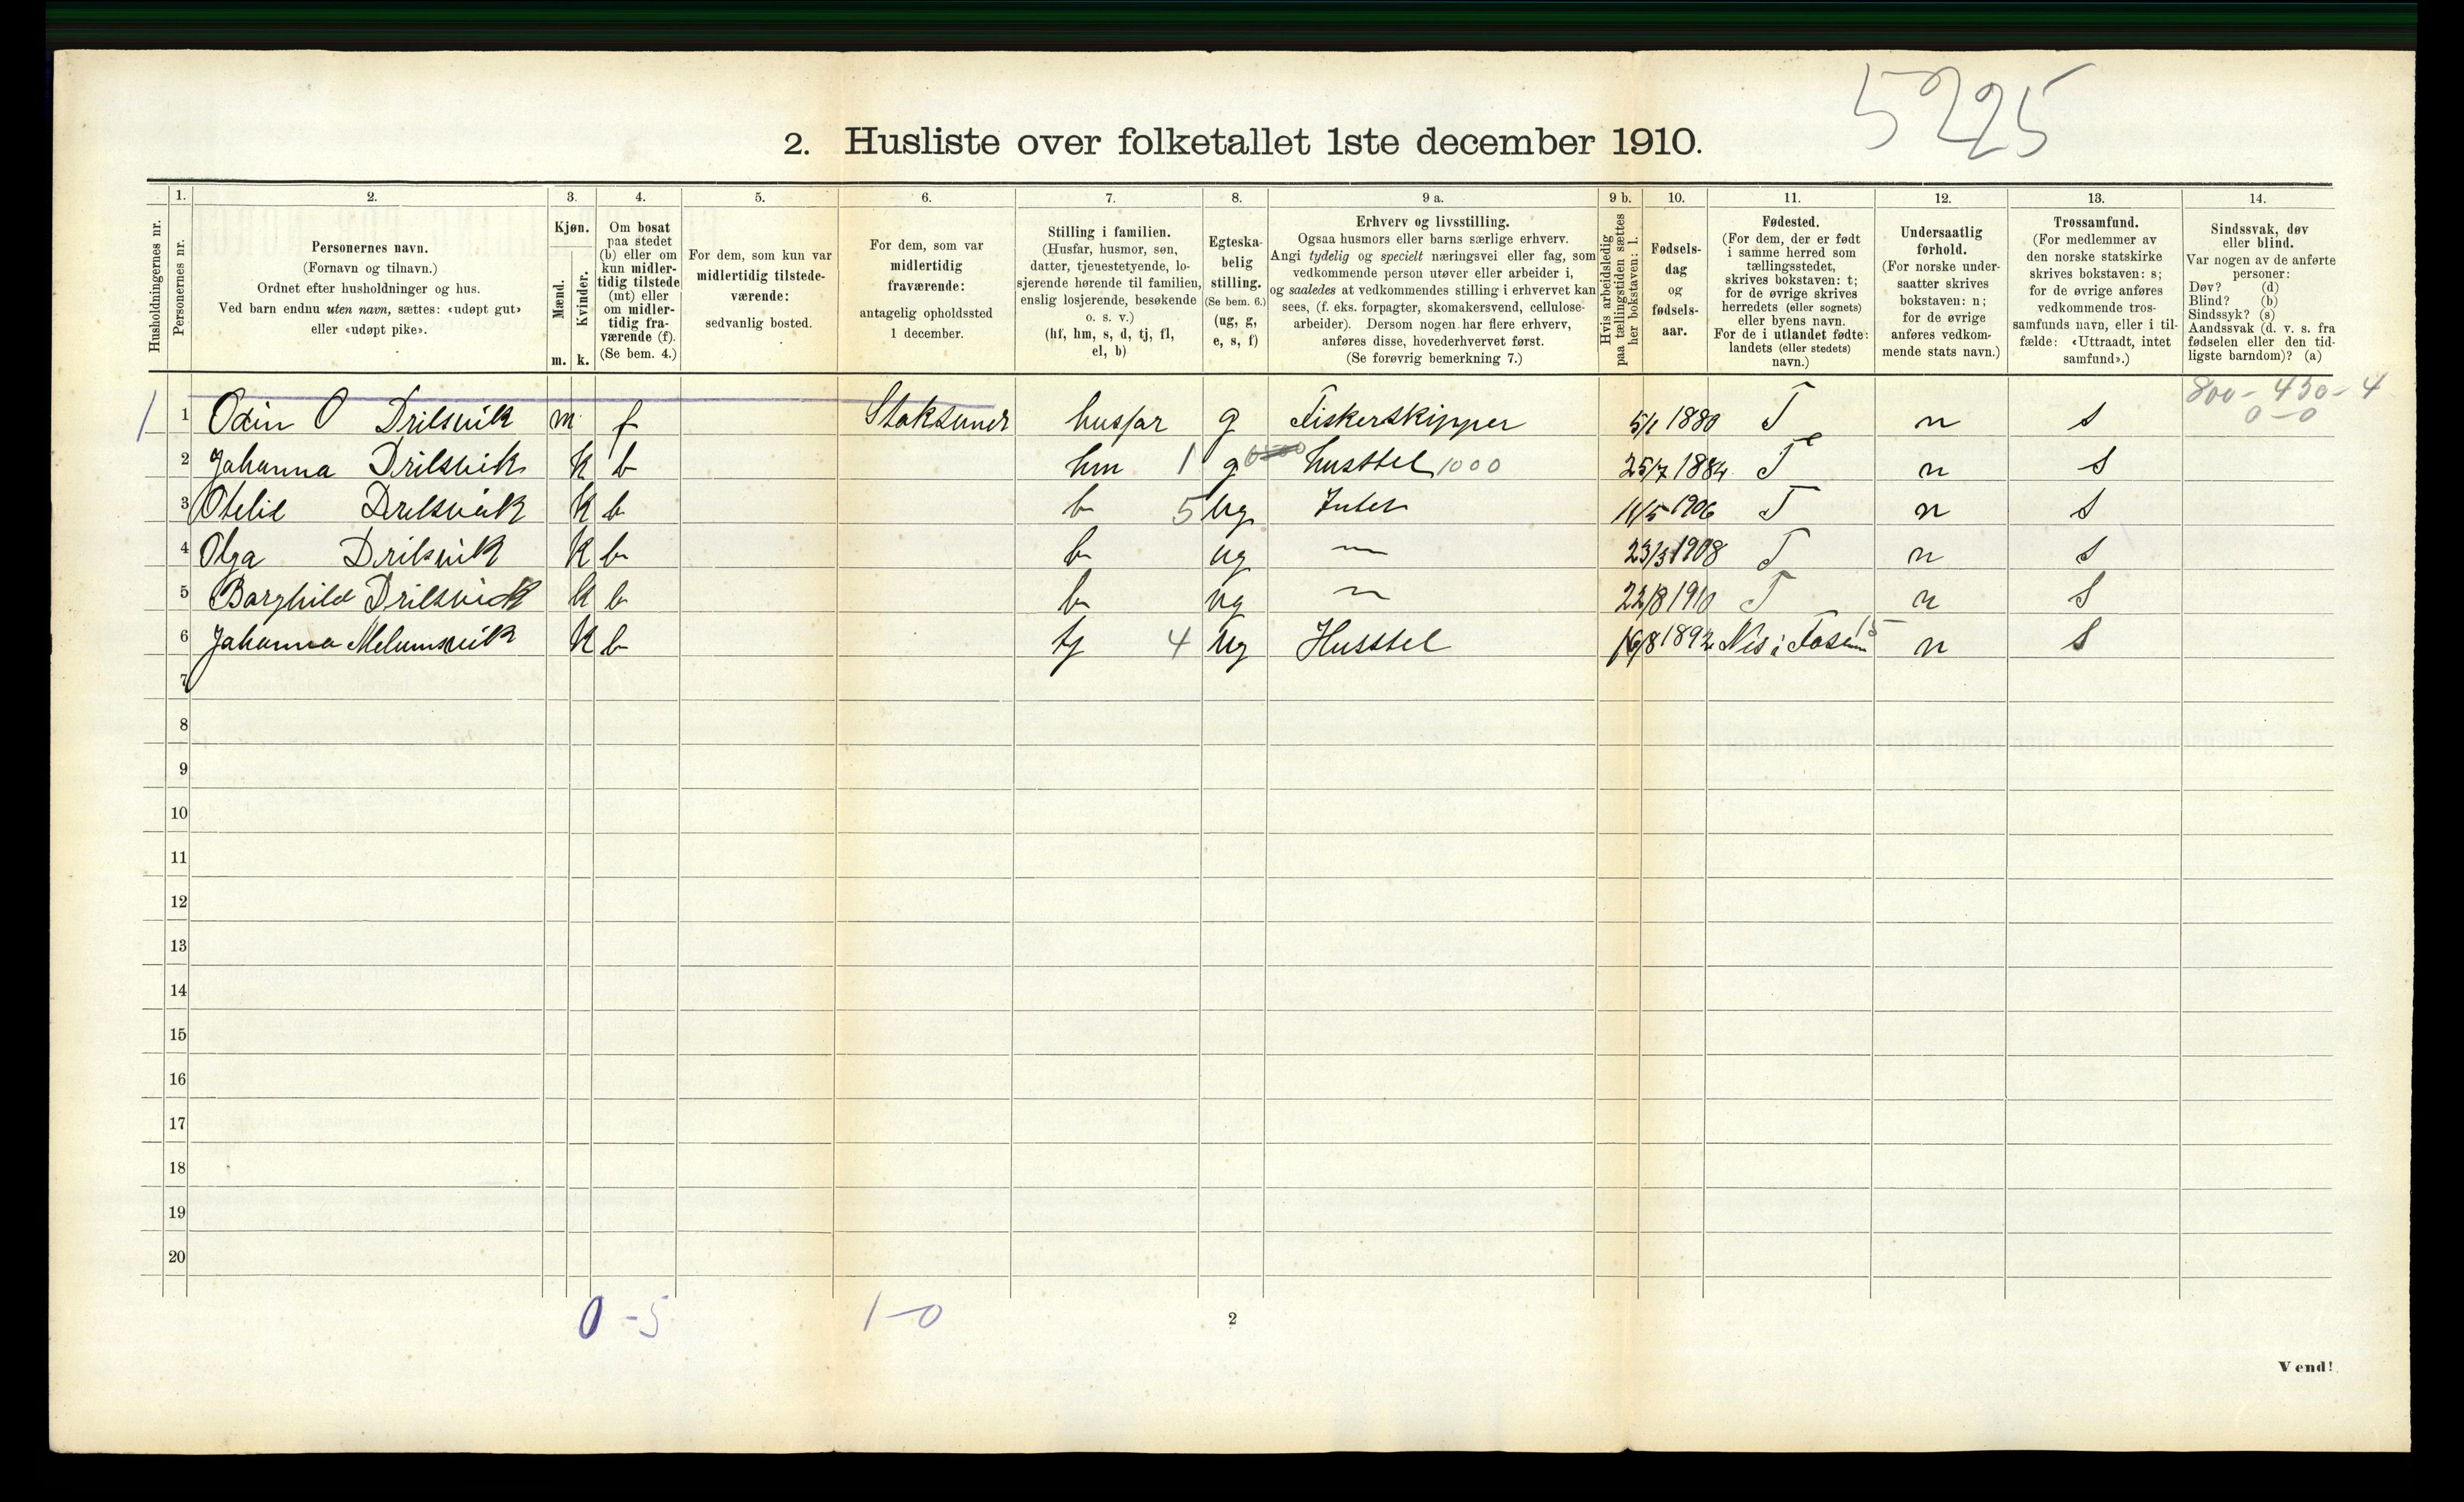 5225
2. Husliste over folketallet 1ste december 1910.
1. 2. 3. 4. 5. 6. 7. 8. 9 a. 9 b. 10. 11. 12. 13. 14.
Husholdningernes nr.
Personernes nr.
Personernes navn.
(Fornavn og tilnavn.)
Ordnet efter husholdninger og hus.
Ved barn endnu uten navn, sættes: «udøpt gut»
eller «udøpt pike».
Kjøn.
Mænd.
Kvinder.
m. k.
Om bosat
paa stedet
(b) eller om
kun midler-
tidig tilstede
(mt) eller
om midler-
tidig fra-
værende (f).
(Se bem. 4.)
For dem, som kun var
midlertidig tilstede-
værende:
sedvanlig bosted.
For dem, som var
midlertidig
fraværende:
antagelig opholdssted
1 december.
Stilling i familien.
(Husfar, husmor, søn,
datter, tjenestetyende, lo-
sjerende hørende til familien,
enslig losjerende, besøkende
o. s. v.)
(hf, hm, s, d, tj, fl,
el, b)
Egteska-
belig
stilling.
(Se bem. 6.)
(ug, g,
e, s, f)
Erhverv og livsstilling.
Ogsaa husmors eller barns særlige erhverv.
Angi tydelig og specielt næringsvei eller fag, som
vedkommende person utøver eller arbeider i,
og saaledes at vedkommendes stilling i erhvervet kan
sees, (f. eks. forpagter, skomakersvend, cellulose-
arbeider). Dersom nogen har flere erhverv,
anføres disse, hovederhvervet først.
(Se forøvrig bemerkning 7.)
Hvis arbeidsledig
paa tællingstiden sættes
her bokstaven: l.
Fødsels-
dag
og
fødsels-
aar.
Fødested.
(For dem, der er født
i samme herred som
tællingsstedet,
skrives bokstaven: t;
for de øvrige skrives
herredets (eller sognets)
eller byens navn.
For de i utlandet fødte:
landets (eller stedets)
navn.)
Undersaatlig
forhold.
(For norske under-
saatter skrives
bokstaven: n;
for de øvrige
anføres vedkom-
mende stats navn.)
Trossamfund.
(For medlemmer av
den norske statskirke
skrives bokstaven: s;
for de øvrige anføres
vedkommende tros-
samfunds navn, eller i til-
fælde: «Uttraadt, intet
samfund».)
Sindssvak, døv
eller blind.
Var nogen av de anførte
personer:
Døv? (d)
Blind? (b)
Sindssyk? (s)
Aandssvak (d. v. s. fra
fødselen eller den tid-
ligste barndom)? (a)
800 - 450 - 4
0 - 0
1 1 Odin O Drilsvik m f Stoksund husfar g Fiskerskipper 5/1 1880 T n s
2 Johanna Drilsvik k b hm 1 g husstel 1000 25/7 1884 T n s
3 Otelie Drilsvik k b b 5 ug Inten 11/5 1906 T n s
4 Olga Drilsvik k b b ug — 23/3 1908 T n s
5 Borghild Drilsvick k b b ug — 22/8 1910 T n s
6 Johanna Melumsvik k b tj 4 ug Husstel 16/8 1892 Nes i Fosen 15 n s
7
8
9
10
11
12
13
14
15
16
17
18
19
20
0 - 5 1 - 0
2
Vend!